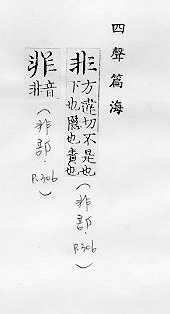 四聲篇海
非方微切不是也
下也隱也責也
(非部．P.306)
音非
(非部．P.306)